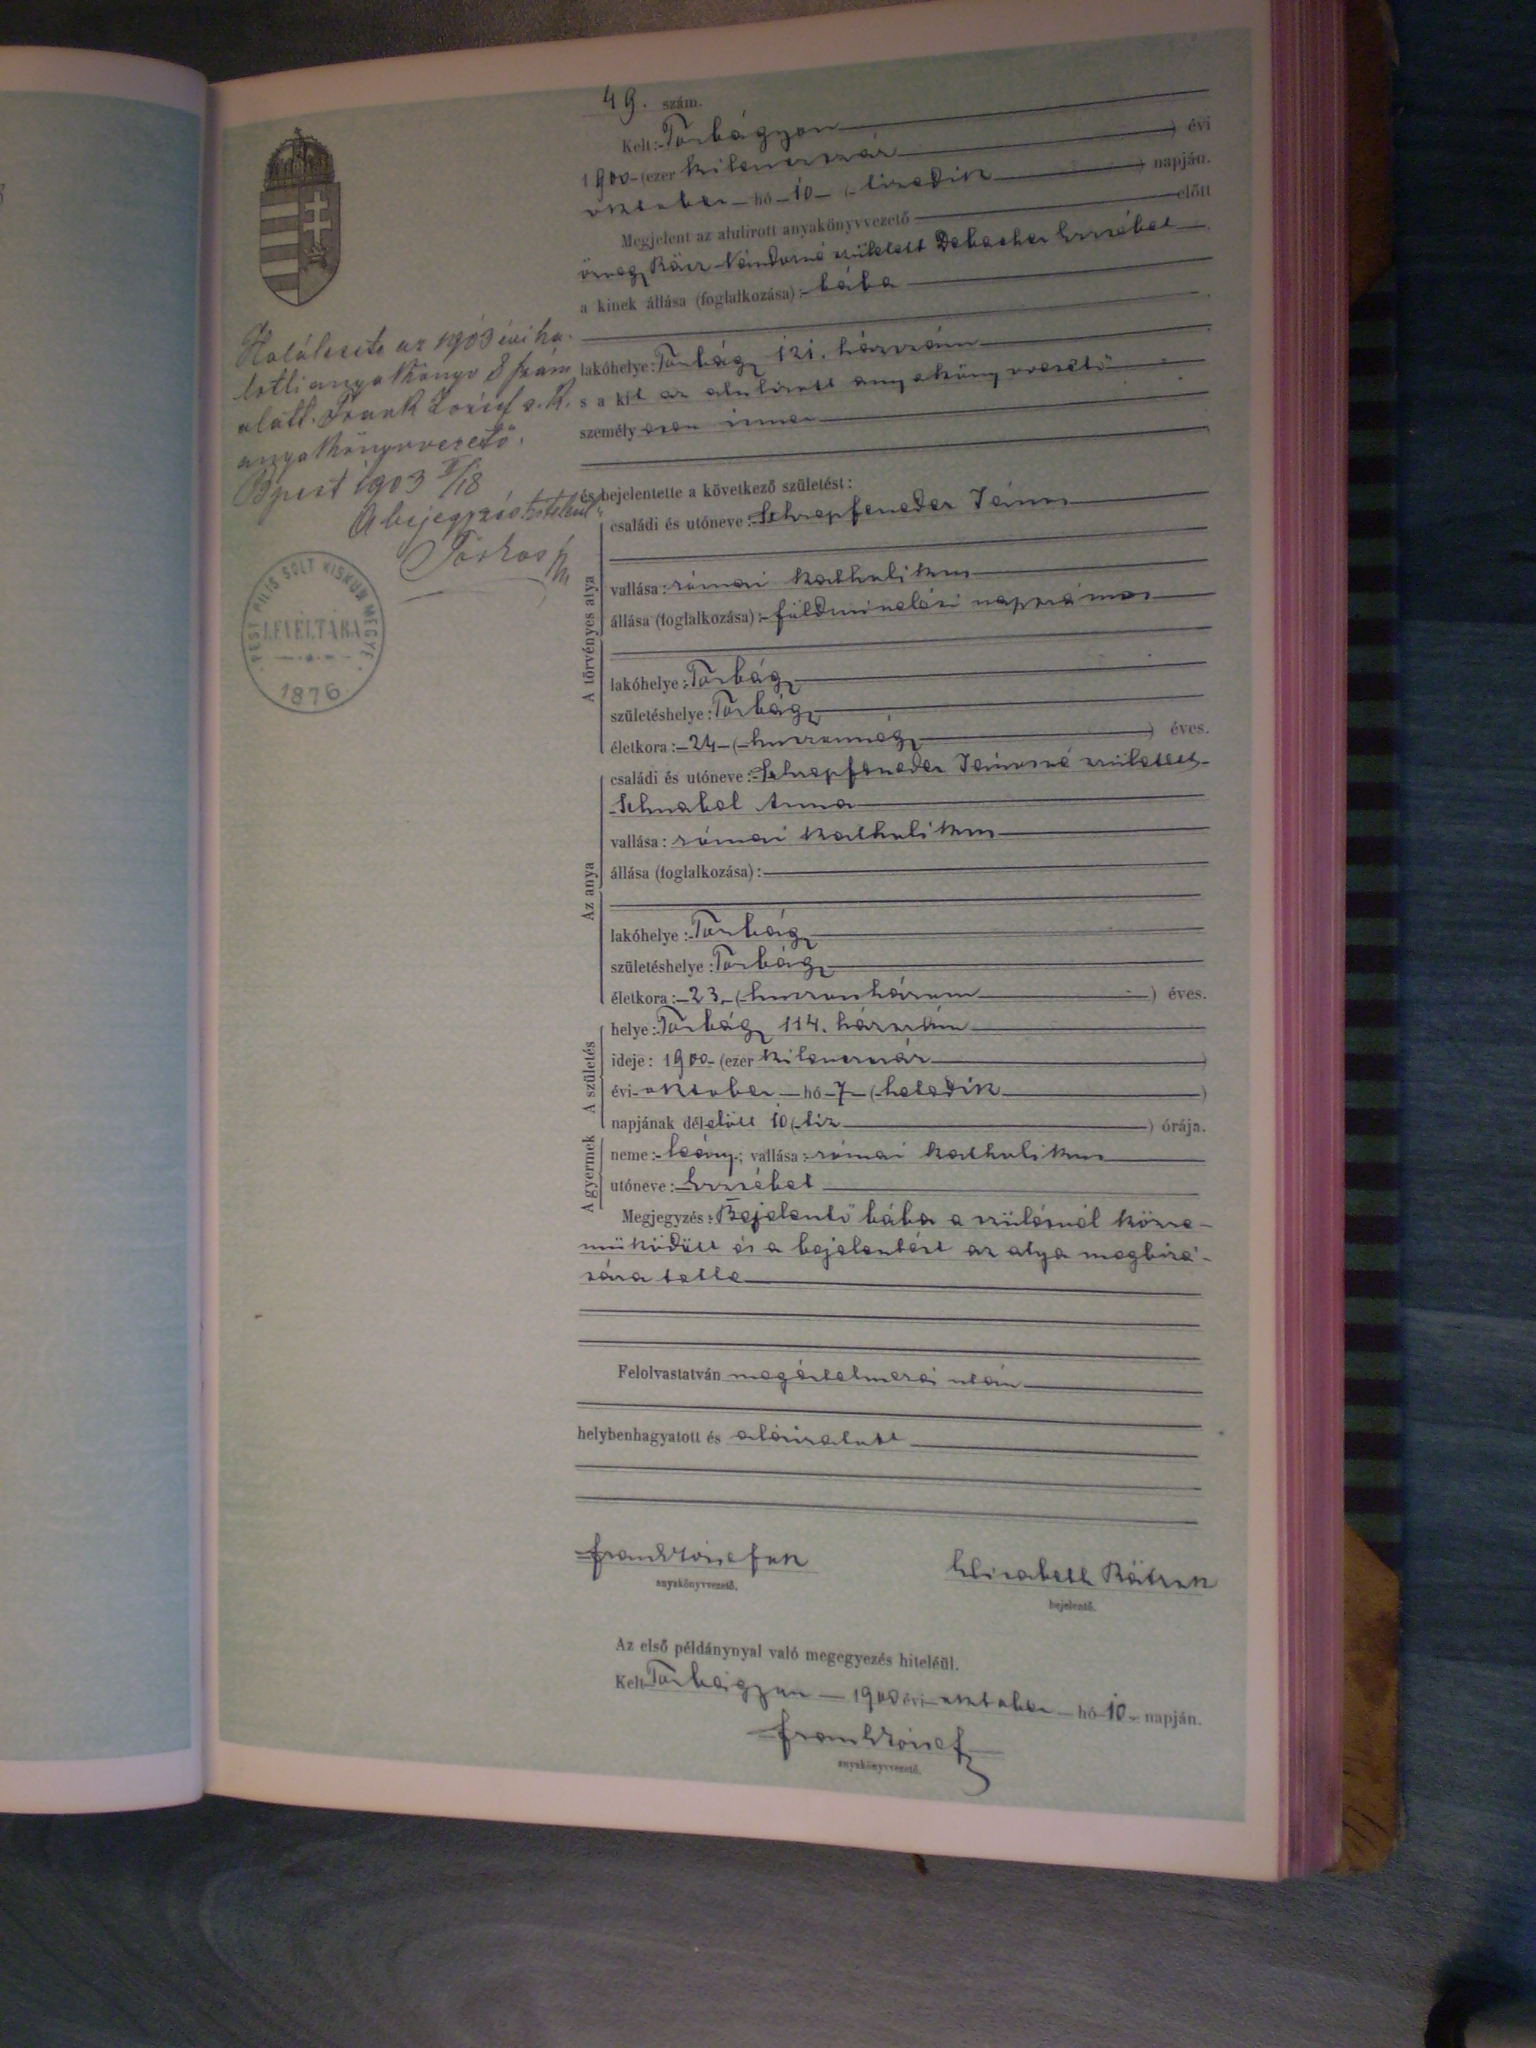 49. szám.
Kelt: Torbágyon
1900 (ezer kilenczszáz) évi
október hó 10 (tizedik) napján.
Megjelent az alulirott anyakönyvvezető előtt
özvegy Rácz Nándorné született Erzsébet
a kinek állása (foglalkozása): bába
lakóhelye: Torbágy 121. házszám
s a kit az alulirott anyakönyvvezető
személyesen ismer
és bejelentette a következő születést:
A törvényes atya
családi és utóneve: Schrepfeneder János
vallása: római katholikus
állása (foglalkozása): földmivelési napszámos
lakóhelye: Torbágy
születéshelye: Torbágy
életkora: 24 (huszonnégy) éves.
Az anya
családi és utóneve: Schrepfeneder Jánosné született
Schnabel Anna
vallása: római katholikus
állása (foglalkozása):
lakóhelye: Torbágy
születéshelye: Torbágy
életkora: 23 (huszonhárom) éves.
A születés
helye: Torbágy 114. házszám
ideje: 1900 (ezer kilenczszáz)
évi október hó 7 (hetedik)
napjának délelőtt 10 (tiz) órája.
A gyermek
neme: leány; vallása: római katholikus
utóneve: Erzsébet
Megjegyzés: Bejelentő bába a szülésnél közre-
müködött és a bejelentést az atya megbizá-
sára tette
Felolvastatván megértelmezés után
helybenhagyatott és aláiratott
Frank József sk
anyakönyvvezető.
Elisabeth Rátz sk
bejelentő.
Az első példánynyal való megegyezés hiteléül.
Kelt Torbágyon 1900 évi október hó 10 napján.
Frank József
anyakönyvvezető.
Halálesete az 1903 évi ha-
lotti anyakönyv 8 szám
alatt. Frank József s. k.
anyakönyvvezető.
Bpest 1903 II/18
A bejegyzés hiteléül
PEST PILIS SOLT KISKUN MEGYE
LEVÉLTÁRA
1876